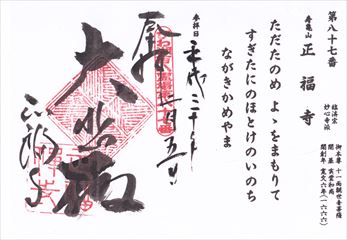 第八十七番
寿亀山 正福寺
臨済宗
妙心寺派
御本尊 十一面観世音菩薩
開基 実堂和尚
開創年 寛文六年(一六六六)
ただたのめ よゝをまもりて
すぎたにのほとけのいのち
ながきかめやま
参拝日
平成三十年
三月五日
奉拝
大悲殿
正福寺